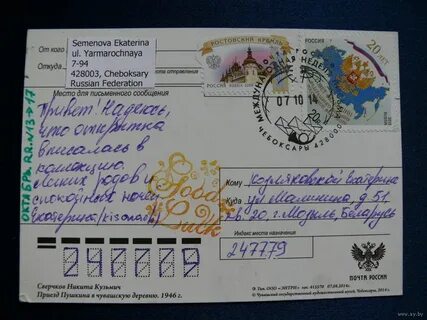 От кого
Откуда
Semenova Ekaterina
ul. Yarmarochnaya
7-94
428003, Cheboksary
Russian Federation
РОСТОВСКИЙ КРЕМЛЬ
РОССИЯ
РОССИЯ
20 ЛЕТ
07 10 14
ЧЕБОКСАРЫ 428000
Место для письменного сообщения
Привет! Надеюсь,
что открытка
вписалась в
коллекцию.
Легких родов и
спокойных ночей
Екатерина
ОКТЯБРЬ RR.N13→17
Good
Luck
Кому
Куда
ул. Малинина, д. 51
кв 20, г. Мозырь, Беларусь
Индекс места назначения
247779
247779
Сверчков Никита Кузьмич
Приезд Пушкина в чувашскую деревню. 1946 г.
ПОЧТА РОССИИ
www.ay.by